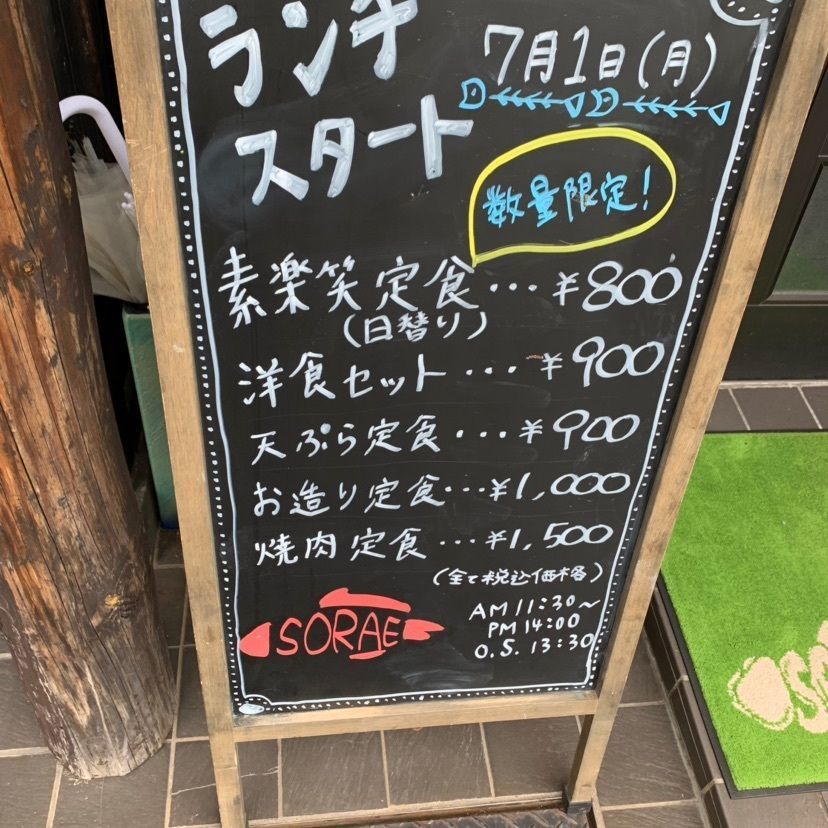 ランチ
スタート
7月1日(月)
数量限定!
素楽笑定食・・・¥800
(日替り)
洋食セット・・・¥900
天ぷら定食・・・¥900
お造り定食・・・¥1,000
焼肉定食・・・¥1,500
(全て税込価格)
SORAE
AM11:30〜
PM14:00
O.S. 13:30